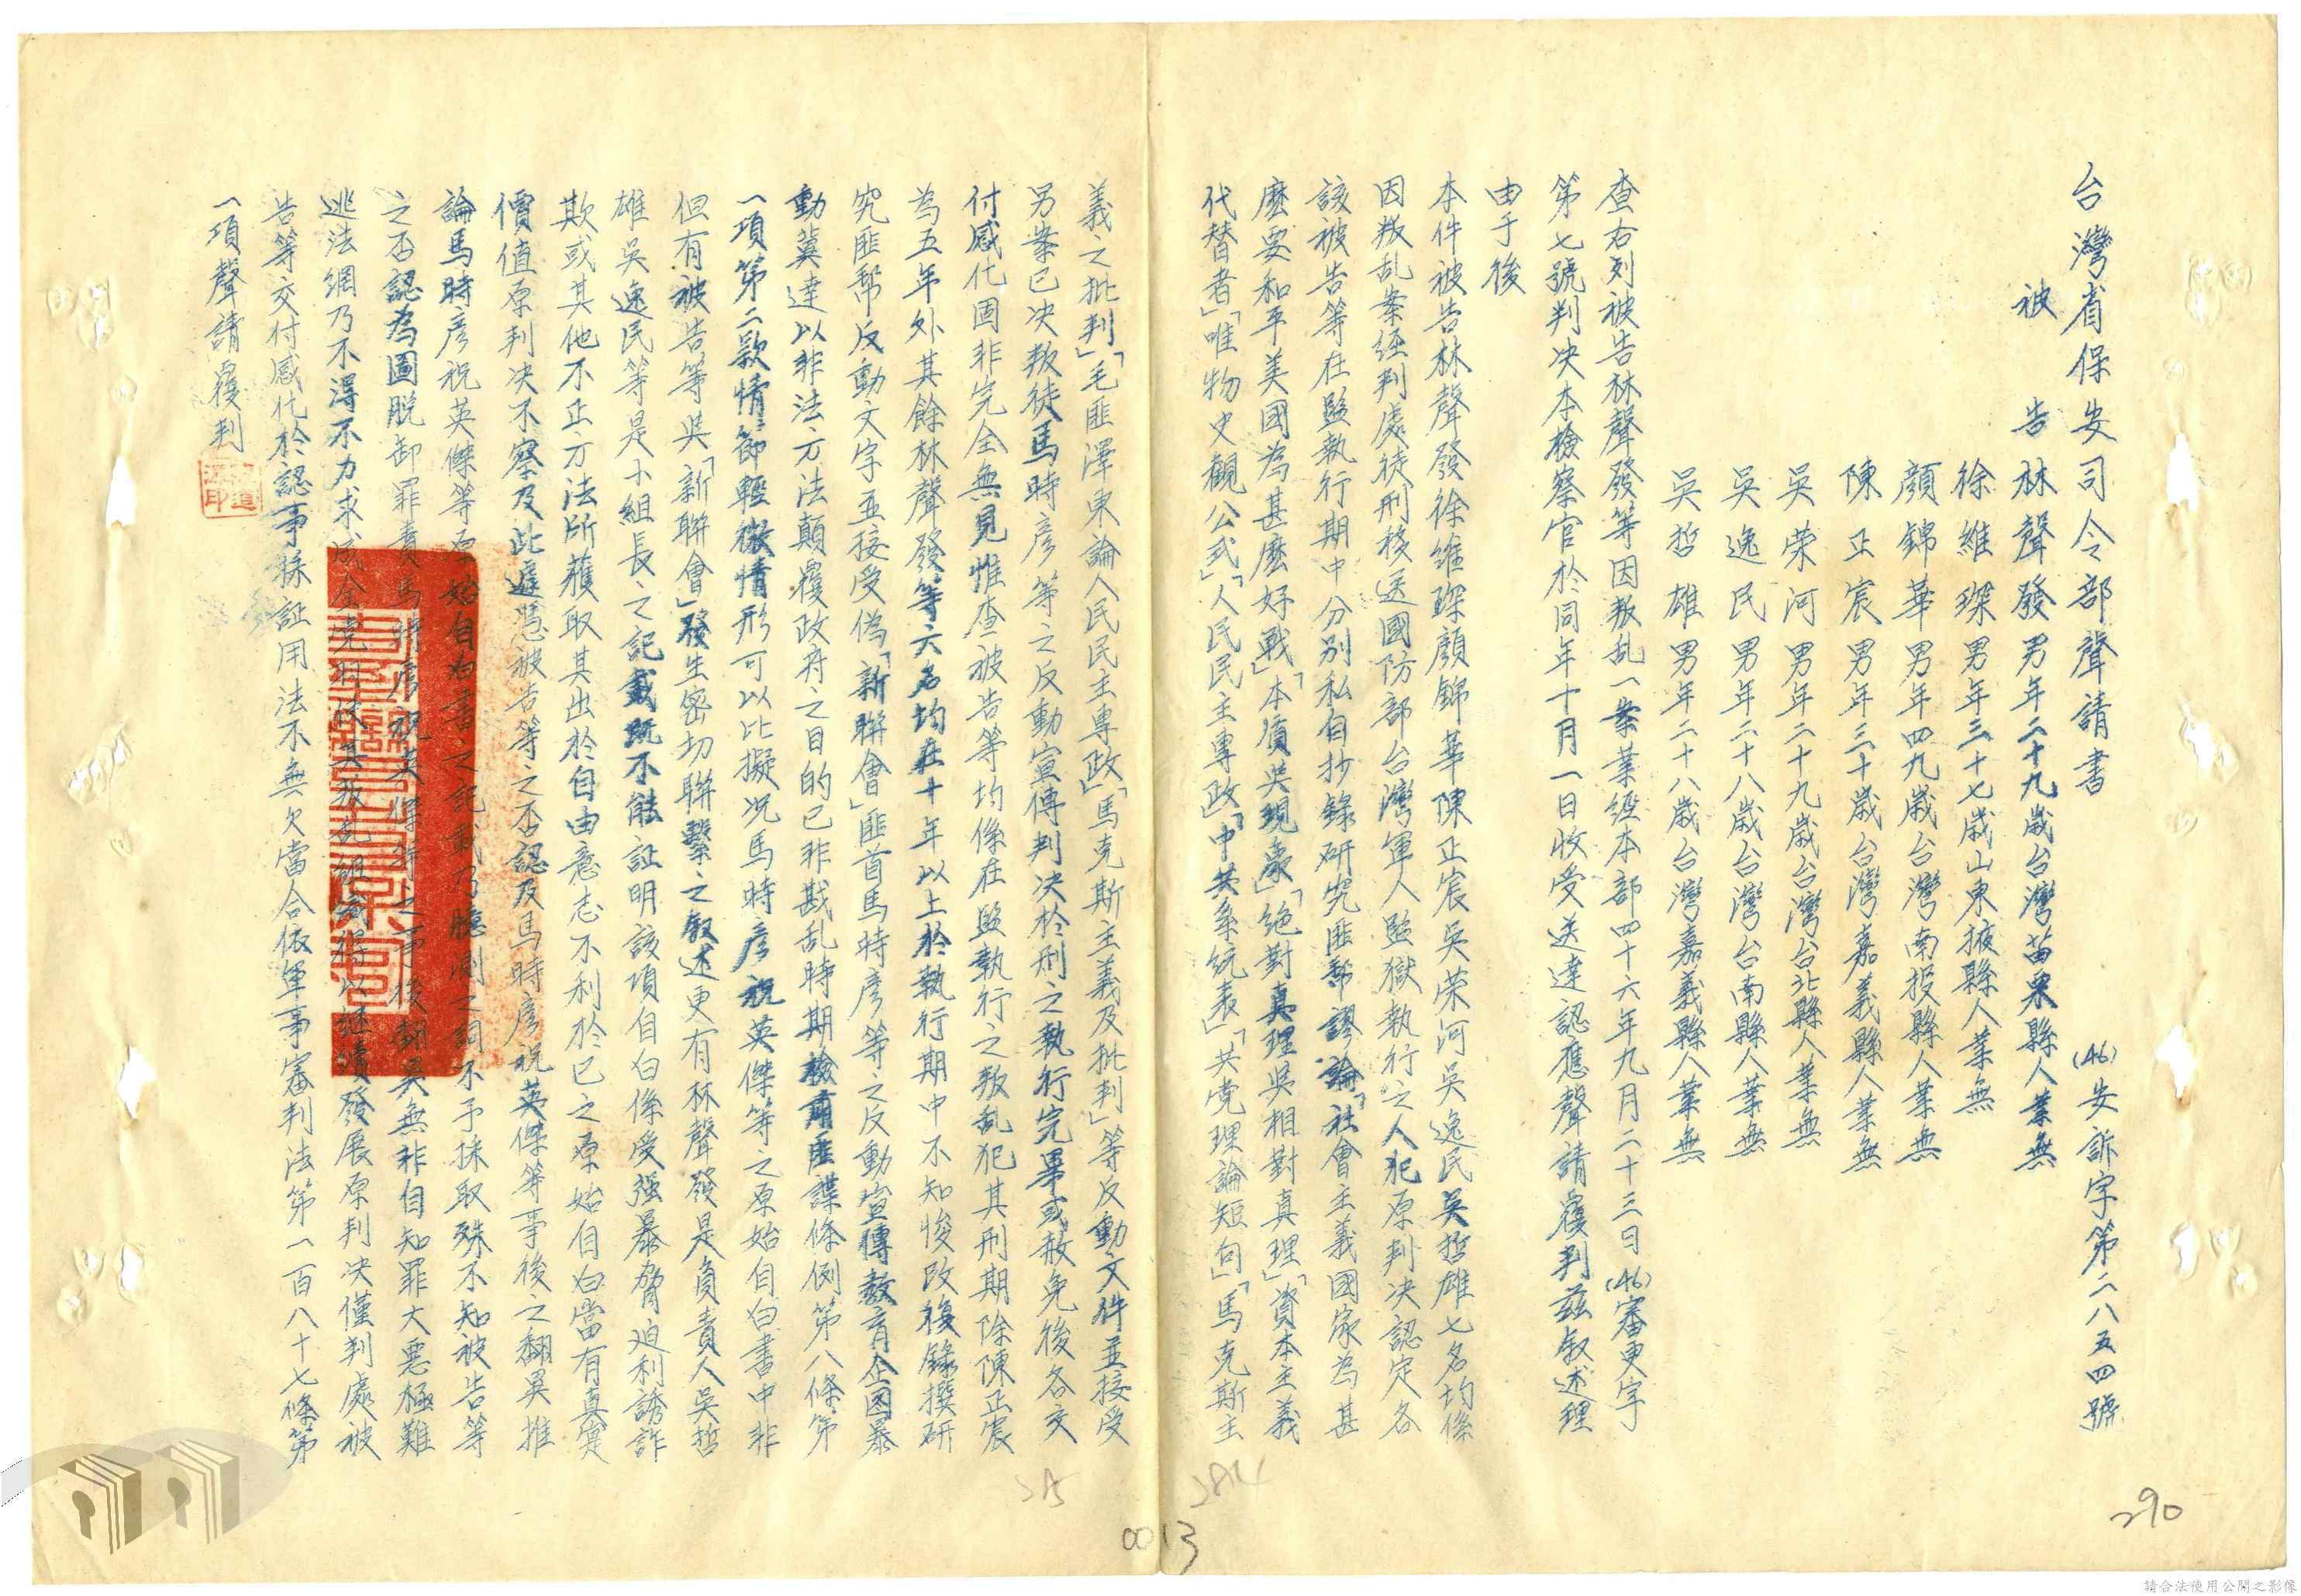 台灣省保安司令部聲請書 (46)安訴字第二八五四號
被告 林聲發 男年二十九歲台灣苗栗縣人業無
徐維琛 男年三十七歲山東掖縣人業無
顏錦華 男年四九歲台灣南投縣人業無
陳正宸 男年三十歲台灣嘉義縣人業無
吳榮河 男年二十九歲台灣台北縣人業無
吳逸民 男年二十八歲台灣台南縣人業無
吳哲雄 男年二十八歲台灣嘉義縣人業無
查右列被告林聲發等因叛乱一案業經本部四十六年九月二十三日(46)審更字
第七號判決本檢察官於同年十月一日收受送達認應聲請覆判茲敘述理
由于後
本件被告林聲發徐維琛顏錦華陳正宸吳榮河吳逸民吳哲雄七名均係
因叛乱案經判處徒刑移送國防部台灣軍人監獄執行之人犯原判決認定各
該被告等在監執行期中分別私自抄錄研究匪幫謬論「社會主義國家為甚
麼要和平美國為甚麼好戰」「本質吳現象」「絕對真理吳相對真理」「資本主義
代替者」「唯物史觀公式」「人民民主專政」「中共系統表」「共党理論短句」「馬克斯主
義之批判」「毛匪澤東論人民民主專政」「馬克斯主義及批判」等反動文件並接受
另案已決叛徒馬時彥等之反動宣傳判決於刑之執行完畢或赦免後各交
付感化固非完全無見惟查被告等均係在監執行之叛乱犯其刑期除陳正宸
為五年外其餘林聲發等六名均在十年以上於執行期中不知悛改複錄撰研
究匪幫反動文字並接受偽「新聯會」匪首馬時彥等之反動宣傳教育企圖暴
動冀達以非法方法顛覆政府之目的已非戡乱時期檢肅匪諜條例第八條第
一項第二款情節輕微情形可以比擬况馬時彥祝英傑等之原始自白書中非
但有被告等吳「新聯會」發生密切聯繫之敘述更有林聲發是負責人吳哲
雄吳逸民等是小組長之記載既不能証明該項自白係受强暴脅迫利誘詐
欺或其他不正方法所獲取其出於自由意志不利於已之原始自白當有真實
價值原判決不察及此遽憑被告等之否認及馬時彥祝英傑等事後之翻異推
論馬時彥祝英傑等原始自白書之記載乃臆測之詞不予採取殊不知被告等
之否認為圖脫卸罪責馬時彥祝英傑等之事後翻異無非自知罪大惡極難
逃法網乃不得不力求成全党羽使其叛乱組織得以延續發展原判決僅判處被
告等交付感化於認事採証用法不無欠當合依軍事審判法第一百八十七條第
一項聲請覆判
290
0013
請合法使用公開之影像